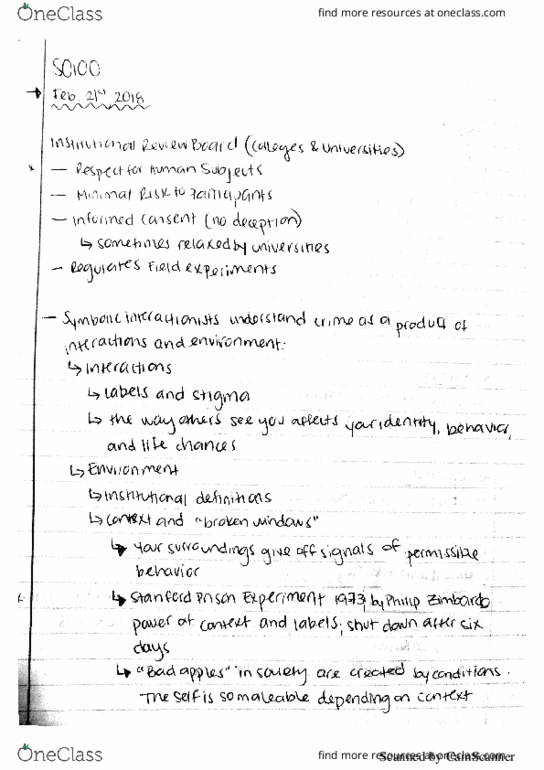 OneClass
find more resources at oneclass.com
SO100
→ Feb. 21st 2019
Institutional Review Board (Colleges & Universities)
x — Respect for Human Subjects
— Minimal Risk to Participants
— Informed Consent (no deception)
↳ sometimes relaxed by universities
— Regulates Field experiments
— Symbolic interactionists understand crime as a product of
interactions and environment:
↳ Interactions
↳ Labels and stigma
↳ the way others see you affects your identity, behavior,
and life chances
↳ Environment
↳ Institutional definitions
↳ Context and "broken windows"
↳ Your surroundings give off signals of permissible
behavior
↳ Stanford Prison Experiment 1973; by Philip Zimbardo
power of context and labels; shut down after six
days
↳ "Bad apples" in society are created by conditions.
The self is so maleable depending on context
OneClass
find more resources at oneclass.com
Scanned by CamScanner